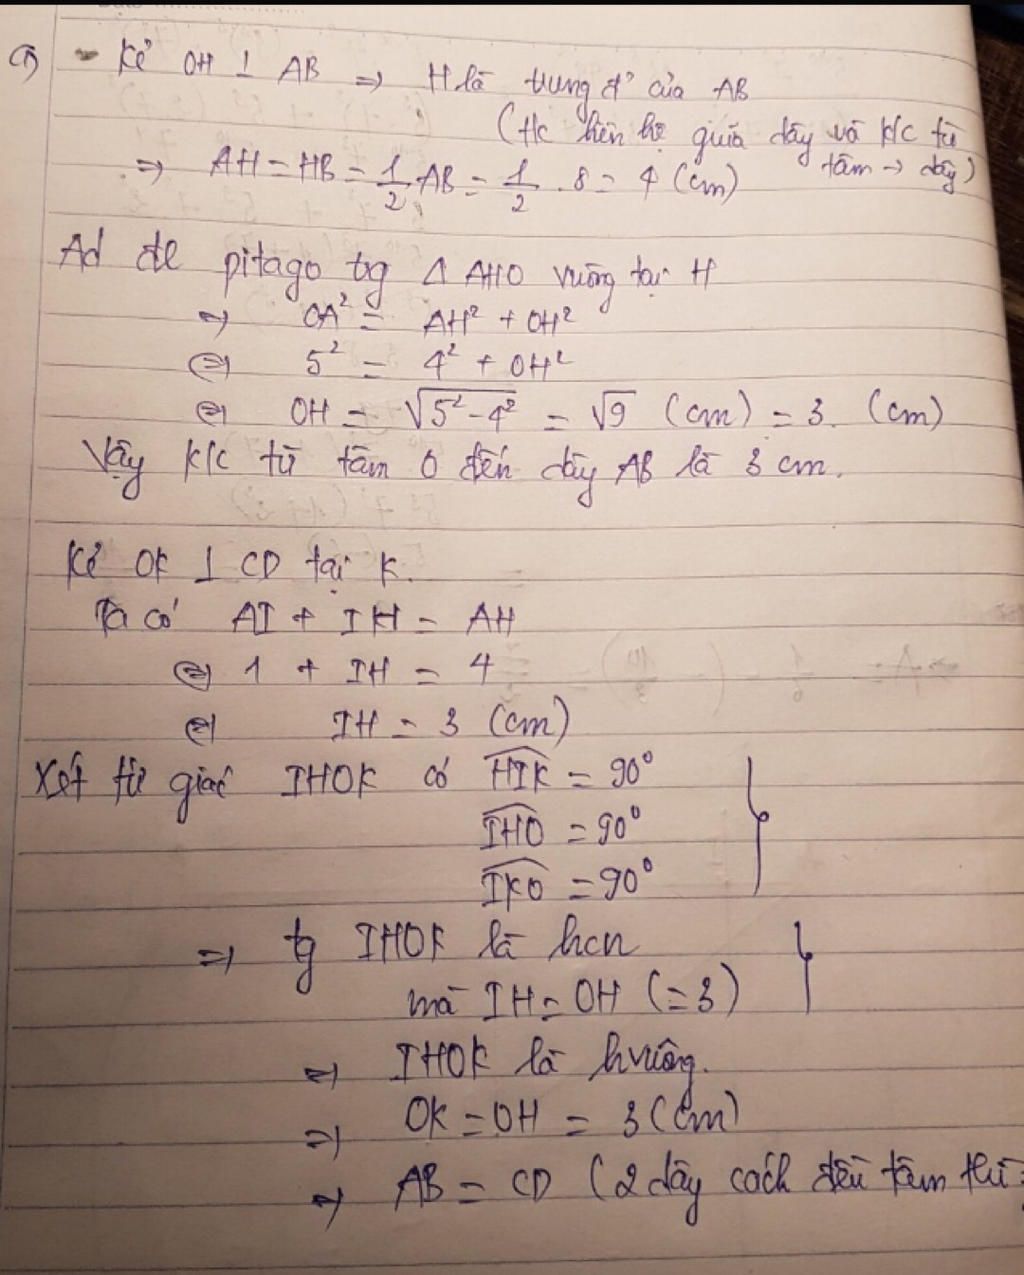 a) - Kẻ OH ⊥ AB => H là trung đ' của AB
(Hc liên hệ giữa dây và k/c từ
tâm -> dây)
=> AH = HB = 1/2 AB = 1/2 . 8 = 4 (cm)
Ad đl pitago tg Δ AHO vuông tại H
=> OA² = AH² + OH²
<=> 5² = 4² + OH²
<=> OH = √(5² - 4²) = √9 (cm) = 3. (cm)
Vậy k/c từ tâm O đến dây AB là 3 cm.
Kẻ OK ⊥ CD tại K.
Ta có AI + IH = AH
<=> 1 + IH = 4
<=> IH = 3 (cm)
Xét tứ giác IHOK có HIK = 90°
IHO = 90°
IKO = 90°
=> tg IHOK là hcn
mà IH = OH (= 3)
=> IHOK là hvuông.
=> OK = OH = 3 (cm)
=> AB = CD (2 dây cách đều tâm thì =